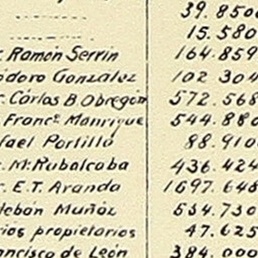 39.850
15.580
Ramón Serrin 164.859
odoro González 102 304
Cárlos B. Obregón 572.568
Franc.º Manrique 544.880
fael Portillo 88.910
M. Rubalcaba 436.424
E. T. Aranda 1697.648
téban Muñoz 554.730
rios propietarios 47.625
ncisco de León 384.000